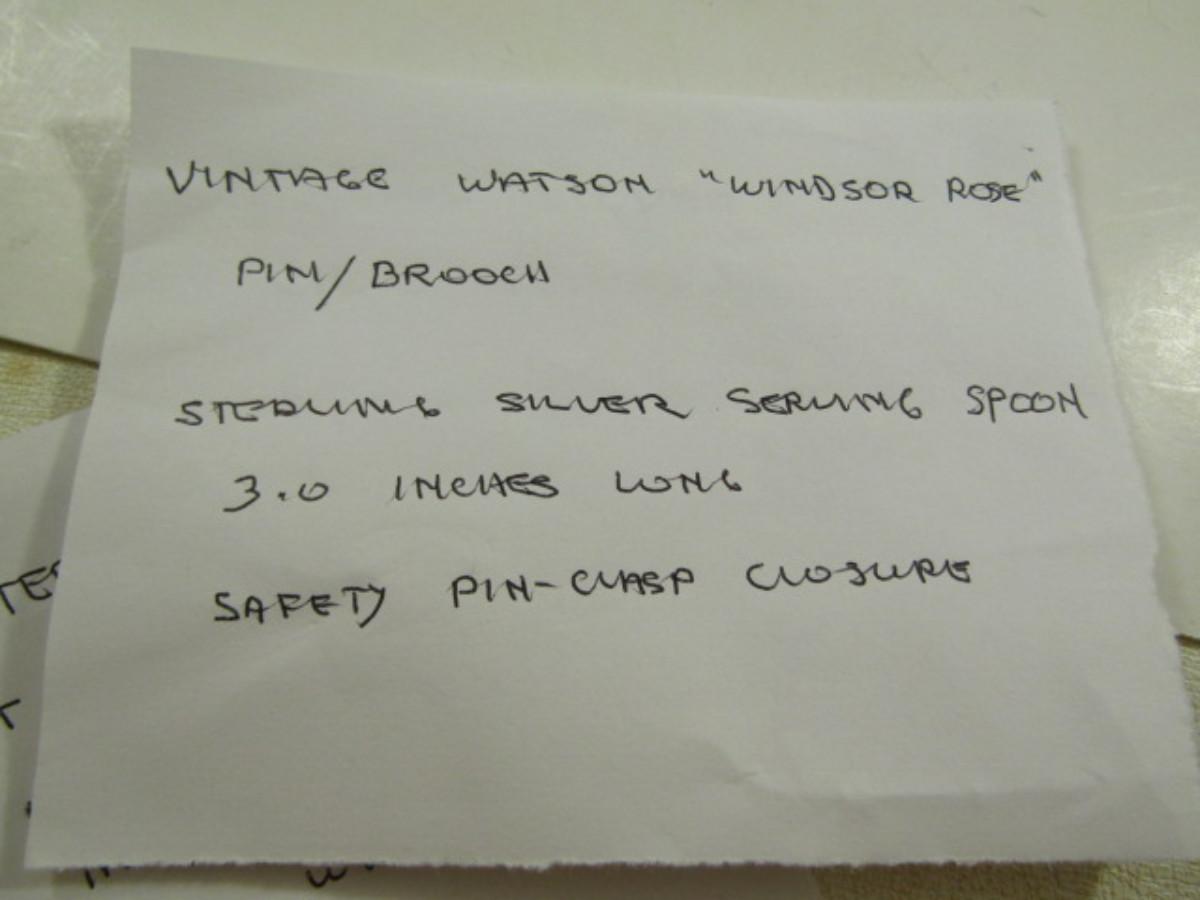 VINTAGE WATSON "WINDSOR ROSE"
PIN/BROOCH
STERLING SILVER SERVING SPOON
3.0 INCHES LONG
SAFETY PIN-CLASP CLOSURE